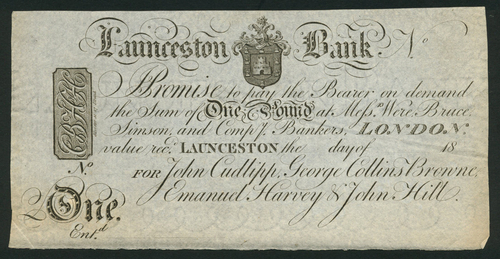 Launceston Bank. No
I Promise to pay the Bearer on demand
the Sum of One Pound at Messrs. Were, Bruce,
Simson, and Compy. Bankers, LONDON.
value recd. LAUNCESTON the day of 18
No
FOR John Cudlipp, George Collins Browne,
Emanuel Harvey & John Hilt.
£ One.
Entd.